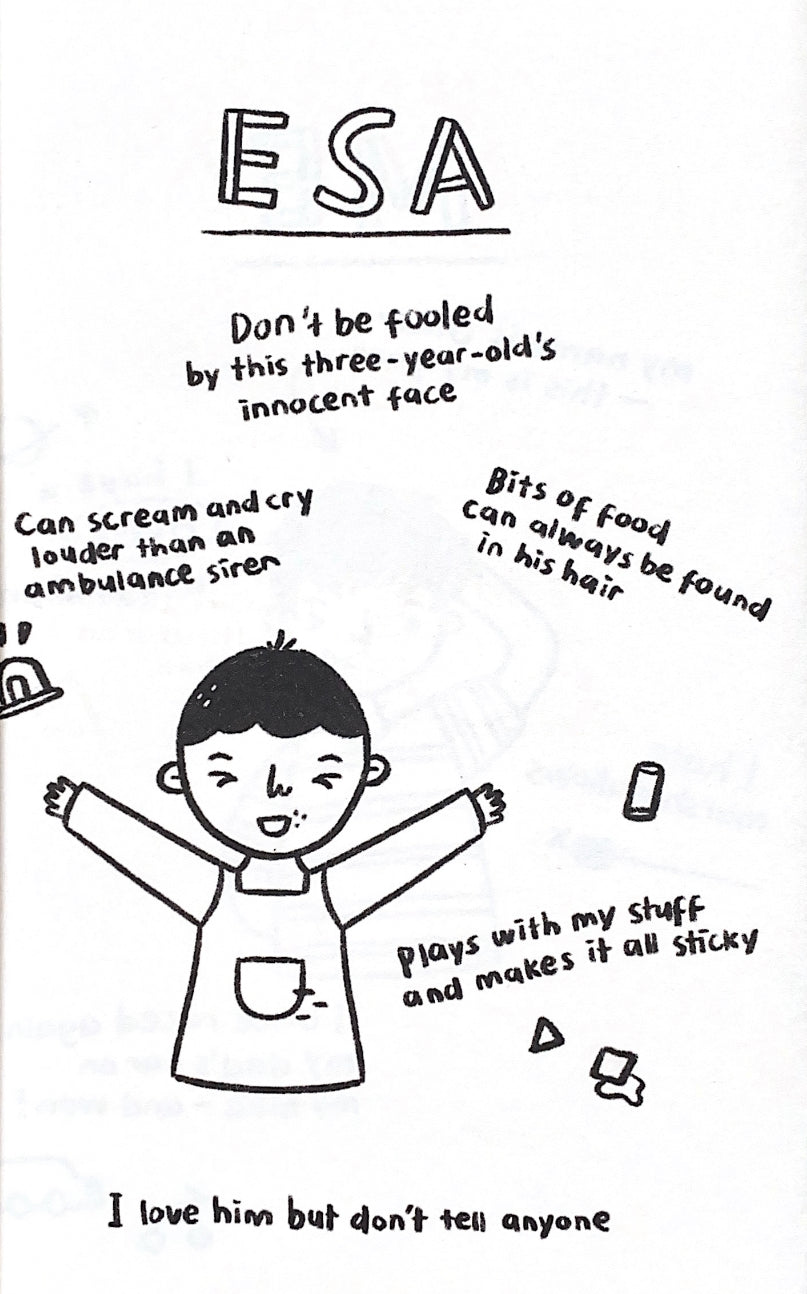 ESA
Don't be fooled
by this three-year-old's
innocent face
Can scream and cry
louder than an
ambulance siren
Bits of food
can always be found
in his hair
Plays with my stuff
and makes it all sticky
I love him but don't tell anyone